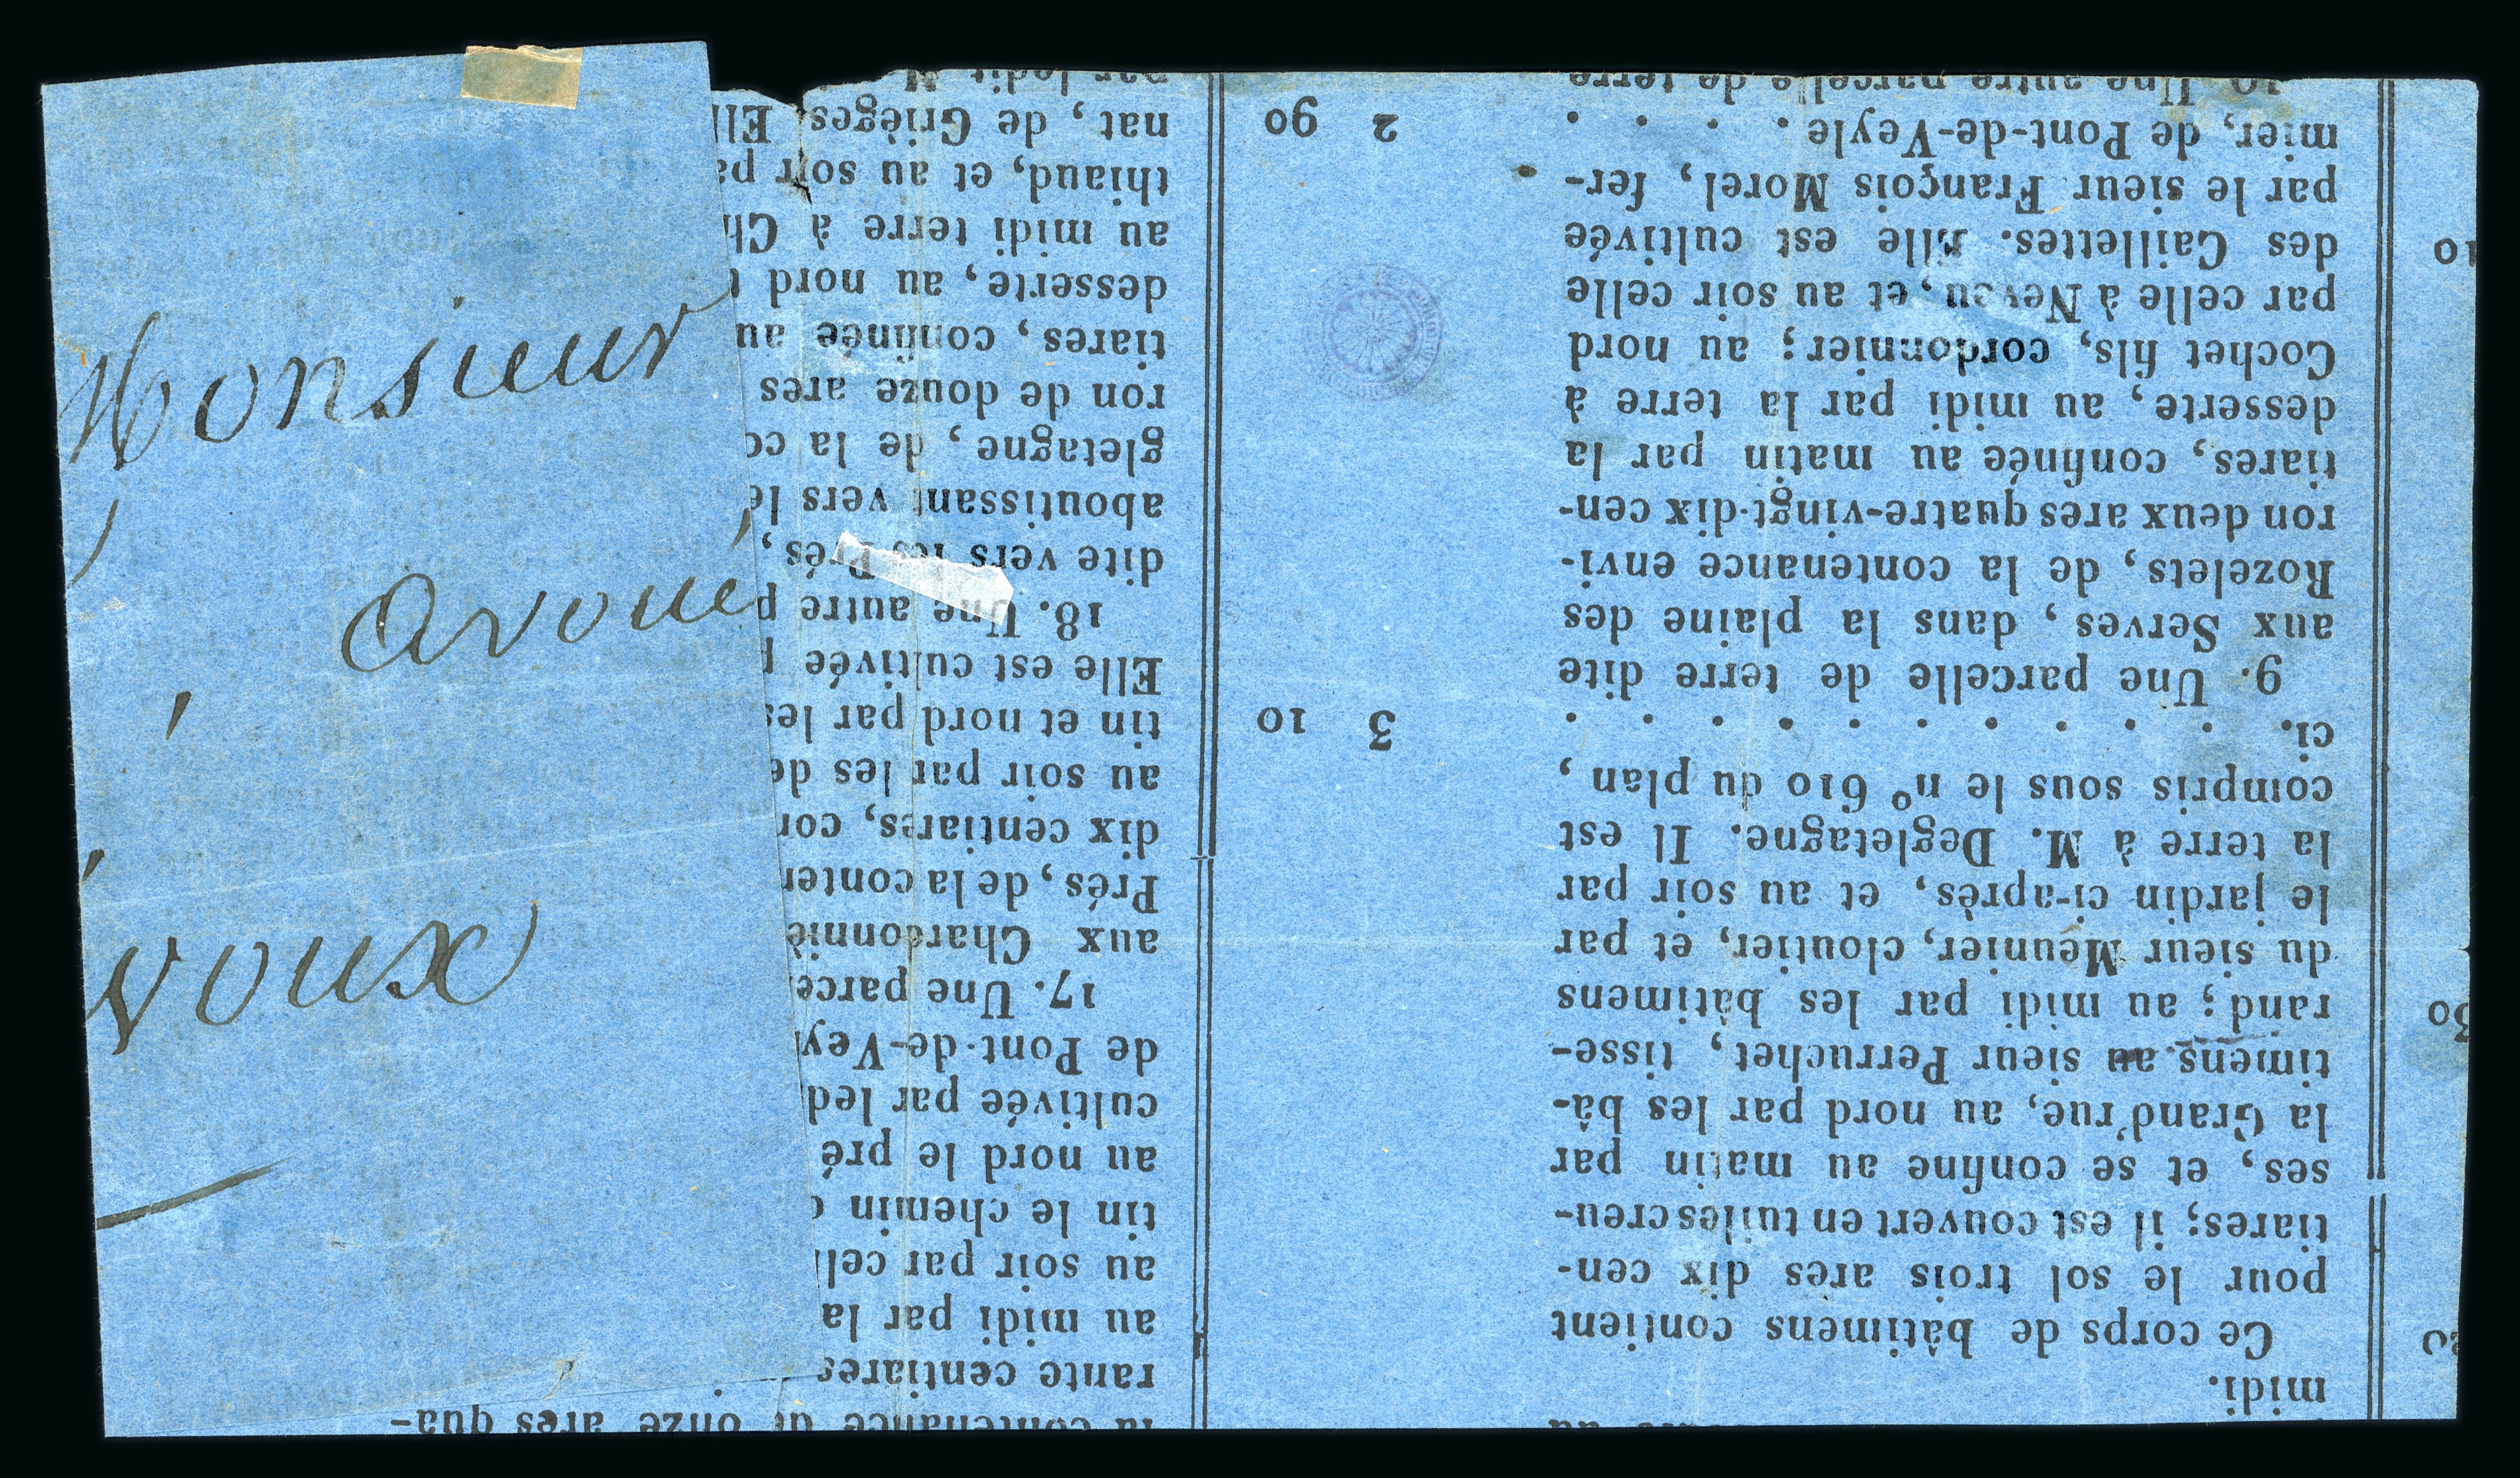 Monsieur
avoué
voux
midi.
Ce corps de bâtimens contient
pour le sol trois ares dix cen-
tiares; il est couvert en tuiles creu-
ses, et se confine au matin par
la Grand'rue, au nord par les bâ-
timens au sieur Perruchet, tisse-
rand; au midi par les bâtimens
du sieur Meunier, cloutier, et par
le jardin ci-après, et au soir par
la terre à M. Degletagne. Il est
compris sous le nº 610 du plan,
ci. . . . . . . . . . . 3 10
9. Une parcelle de terre dite
aux Serves, dans la plaine des
Rozelets, de la contenance envi-
ron deux ares quatre-vingt-dix cen-
tiares, confinée au matin par la
desserte, au midi par la terre à
Cochet fils, cordonnier; au nord
par celle à Neveu, et au soir celle
des Caillettes. Elle est cultivée
par le sieur François Morel, fer-
mier, de Pont-de-Veyle . . . . 2 90
10. Une autre parcelle de terre
la contenance de onze ares qua-
rante centiares
au midi par la
au soir par cell
tin le chemin
au nord le pré
cultivée par led
de Pont-de-Vey
17. Une parce
aux Chardonniè
Prés, de la conten
dix centiares, con
au soir par les de
tin et nord par les
Elle est cultivée p
18. Une autre p
dite vers les Prés,
aboutissant vers le
gletagne, de la co
ron de douze ares
tiares, confinée au
desserte, au nord
au midi terre à Ch
thiaud, et au soir pa
nat, de Grièges. Ell
par ledit M
20
30
10